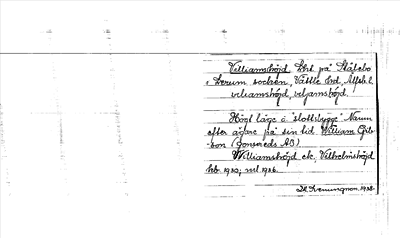 Williamshöjd, lht på Ståfsbo
i Lerum socken, Vättle hd, Älfsb. l.
viliamshöjd, viljamshöjd.
Högt läge å "slottsbygge" Namn
efter ägare på sin tid William Gib-
son (Jonsereds AB)
Williamshöjd ek, Vilhelmshöjd
hb. 1930; ml 1936.
1938